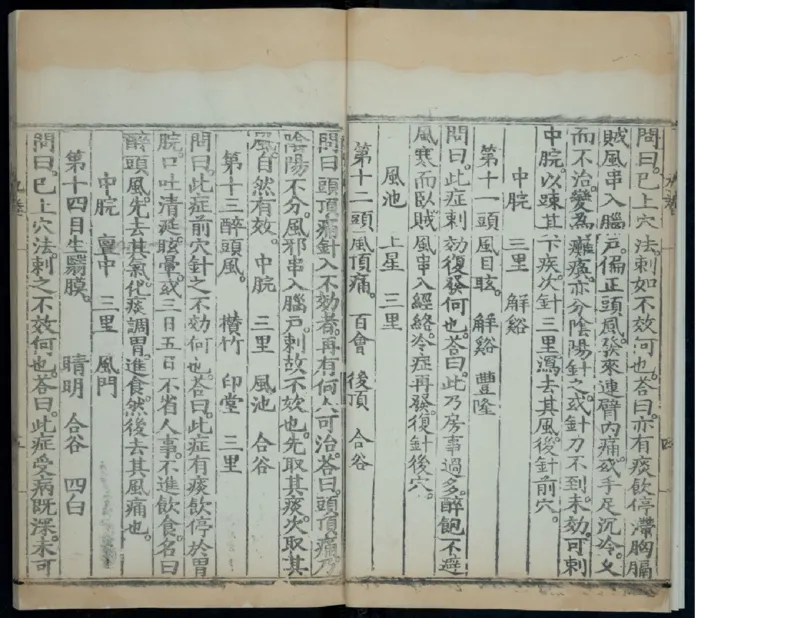 問曰。已上穴法。刺如不效。何也。荅曰。亦有痰飲停滯胸膈
賊風串入腦戶。偏正頭風。發來連臂內痛。或手足沉冷。久
而不治。變為癱瘓。亦分陰陽針之。或針刀不到。未効。可刺
中脘。以踈其下疾。次針三里。瀉去其風。後針前穴。
中脘 三里 解谿
第十一頭風目眩。 解谿 豐隆
問曰。此症刺効復發。何也。荅曰。此乃房事過多。醉飽不避
風寒而臥。賊風串入經絡。冷症再發。復針後穴。
風池 上星 三里
第十二頭風頂痛。 百會 後頂 合谷
問曰。頭頂痛。針入不効者。再有何穴可治。荅曰。頭頂痛。乃
陰陽不分。風邪串入腦戶。刺故不效也。先取其痰。次取其
風。自然有效。 中脘 三里 風池 合谷
第十三醉頭風。 攢竹 印堂 三里
問曰。此症前穴針之不効。何也。荅曰。此症有痰飲停於胃
脘。口吐清涎。眩暈。或三日五日不省人事。不進飲食。名曰
醉頭風。先去其氣。化痰調胃。進食。然後去其風痛也。
中脘 亶中 三里 風門
第十四目生翳膜。 睛明 合谷 四白
問曰。已上穴法。刺之不效。何也。荅曰。此症受病既深。未可